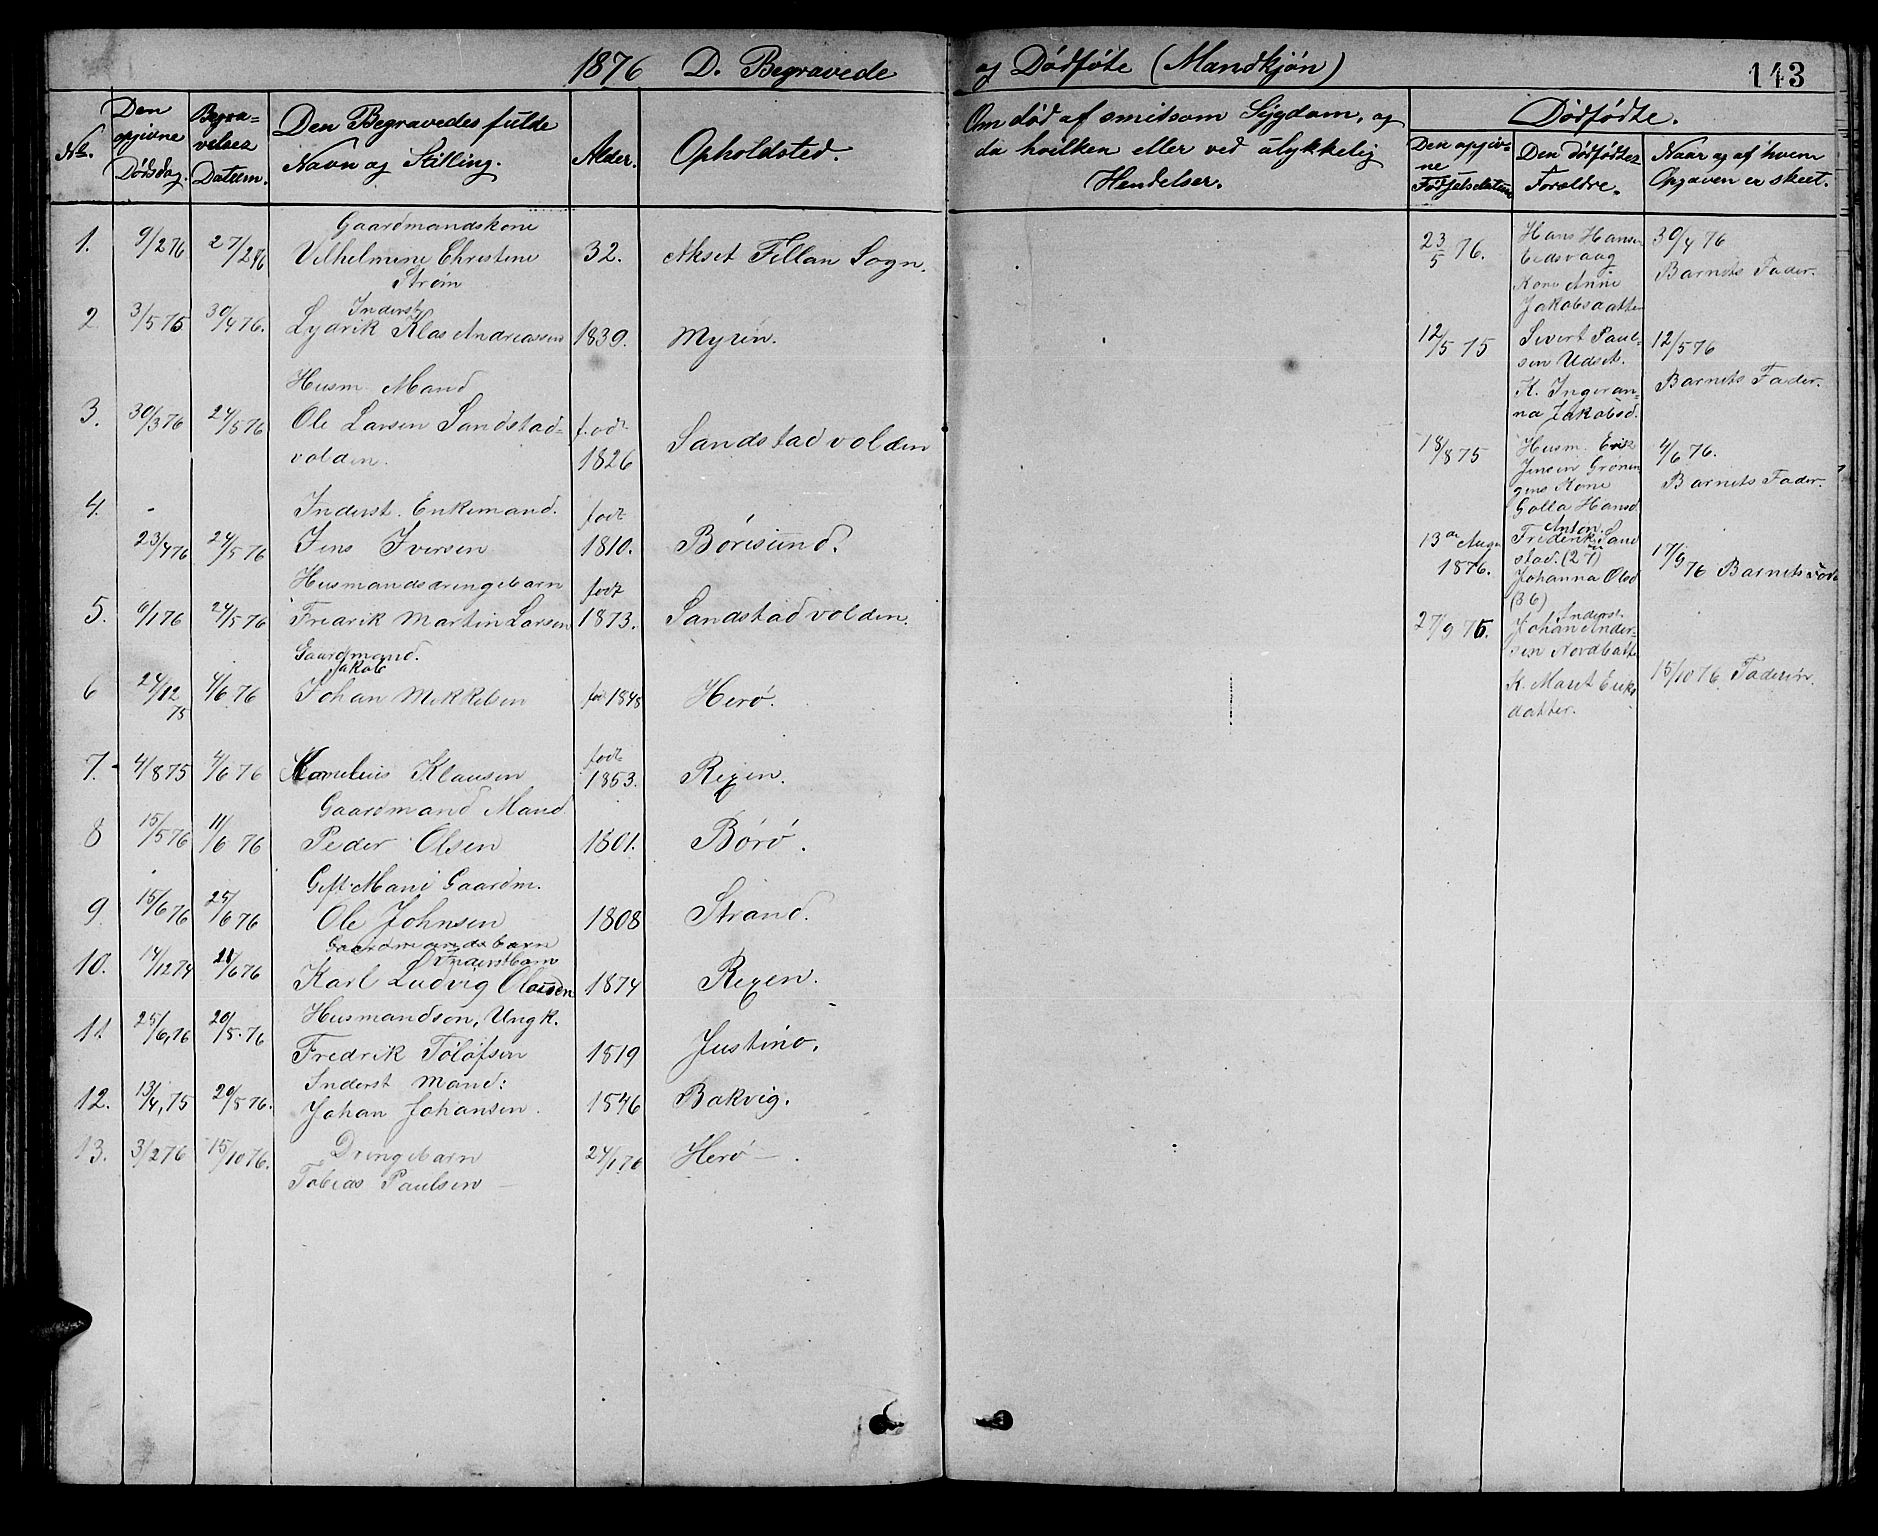 1876 D. Begravede og Dødføte (Mandkjøn) 143
No. Den opgivne Dødsdag. Begravelses Datum. Den Begravedes fulde Navn og Stilling. Alder. Opholdsted. Om død af smitsom Sygdom, og da hvilken eller ved ulykkelig Hendelser.
Dødfødte.
Den opgivne Fødselsdatum Den dødfødtes Foreldre. Naar og af hvem Opgaven er skeet.
Gaardmandskone
1. 9/2 76 27/2 76 Vilhelmine Christine 32. Akset Fillan Sogn.
Strøm
Inderst
2. 3/5 75 30/4 76. Lydrik Klas Andreassen 1839. Myren.
Husm. Mand
3. 30/3 76 24/5 76 Ole Larsen Sandstad= født Sandstadvolden
volden. 1826
4. Inderst. Enkemand. født
23/4 76 24/5 76 Jens Iversen 1810. Børisund.
Husmandsdrengebarn født
5. 6/1 76 24/5 76 Fredrik Martin Larsen 1873. Sandstadvolden.
Gaardmand.
Jakob
6 24/12 75 4/6 76 Johan Mikkelsen 1848 Herø.
født
7. 4/8 75 4/6 76 Kornelius Klausen 1853. Rexen.
Gaardmand Mand
8 15/5 76 11/6 76 Peder Olsen 1801. Børø.
Gift Mand Gaardm.
9. 15/6 76 25/6 76 Ole Johnsen 1808 Strand.
Gaardmandsbarn
Inderstbarn
10. 14/12 74 /6 76 Karl Ludvig 1874 Rexen.
Husmandsøn, Ungk.
11. 25/6, 76 20/5. 76 Fredrik Toløfsen 1819 Justinø.
Inderst Mand:
12. 13/4, 75 20/5 76. Johan Johansen. 1846 Bakvig.
Drengebarn
13. 3/2 76 15/10 76. Tobias Paulsen 24/1 76 Herø
23/5 76. Hans Hansen 30/4 76
Eidsvaag Barnets Fader.
Kone Anne
Jakobsdatter
12/5 75 Sivert Paul= 12/5 76
sen Udset. Barnets Fader.
K. Ingeran=
na Jakobsd.
18/8 75 Husm. Erik 4/6 76.
Jensen Gronin Barnets Fader.
gens Kone
Golla Hansd.
Anton
13de Aug. Frederik Sand
1876. stad. (27) 17/9 76 Barnets
Johanna Olsd
(36)
Inderst
27/9 76. Johan Ander=
sen 15/10 76. Faderen.
K. Maret Eriks
datter.